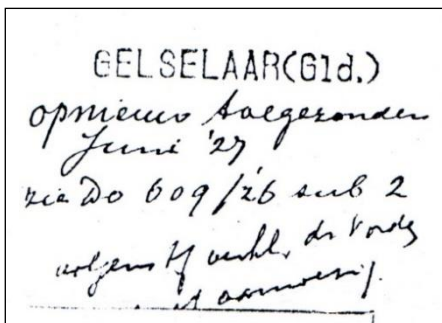 GELSELAAR(Gld.)
opnieuw toegezonden
Juni '27
zie Do 609/'26 sub 2
volgens
aanwezig.